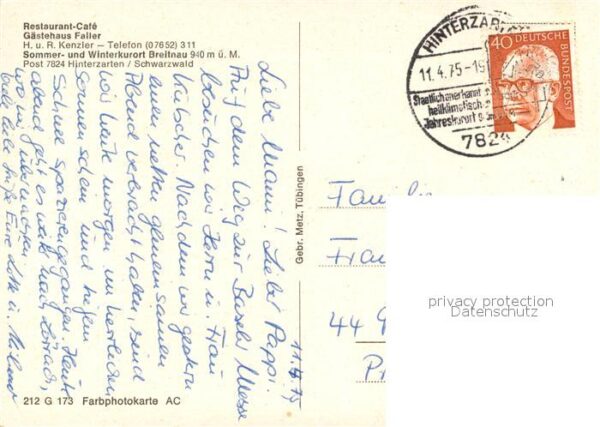 Restaurant-Café
Gästehaus Faller
H. u. R. Kenzler — Telefon (07652) 311
Sommer- und Winterkurort Breitnau 940 m ü. M.
Post 7824 Hinterzarten / Schwarzwald
HINTERZARTEN
11.4.75-19
Staatlich anerkannt
heilklimatisch
Jahreskurort
7824
40
DEUTSCHE
BUNDESPOST
11.4.75
Liebe Mami! Lieber Pappi!
Auf dem Weg zur Basler Messe
besuchen wir Herrn u. Frau
Nachdem wir gestern
einen netten gemeinsamen
Abend verbracht haben, sind
wir heute morgen im herrlichen
Sonnenschein und tiefen
Schnee spazierengegangen. Heute
abend geht es weiter nach Lörrach,
wo wir übernachten.
viele liebe Grüße Eure Lotte u.
Gebr. Metz, Tübingen
Familie
44
privacy protection
Datenschutz
212 G 173 Farbphotokarte AC